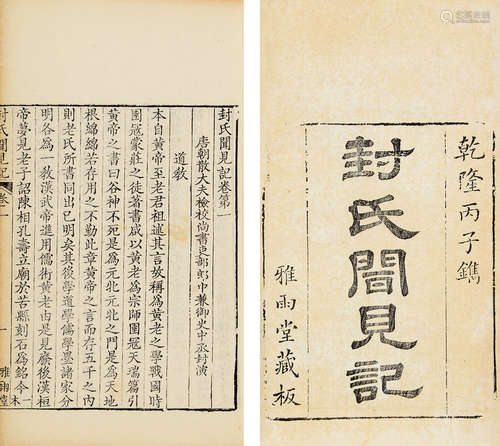 乾隆丙子鐫
封氏聞見記
雅雨堂藏板
封氏聞見記卷第一
唐朝散大夫檢校尚書吏部郎中兼御史中丞封演
道教
本自黃帝至老君祖述其言故稱為黃老之學戰國時
圄寇蒙莊之徒著書咸以黃老為宗師圄寇天瑞篇引
黃帝之書曰谷神不死是為元牝元牝之門是為天地
根綿綿若存用之不勤此章黃帝之言而存五千之内
則老氏所書同出已明矣其後學道學儒學墨諸家分
明各為一教漢武帝進用儒術黃老由是見廢後漢桓
帝夢見老子詔陳相孔壽立廟於苦縣刻石為銘今未
封氏聞見記 卷一 一 雅雨堂